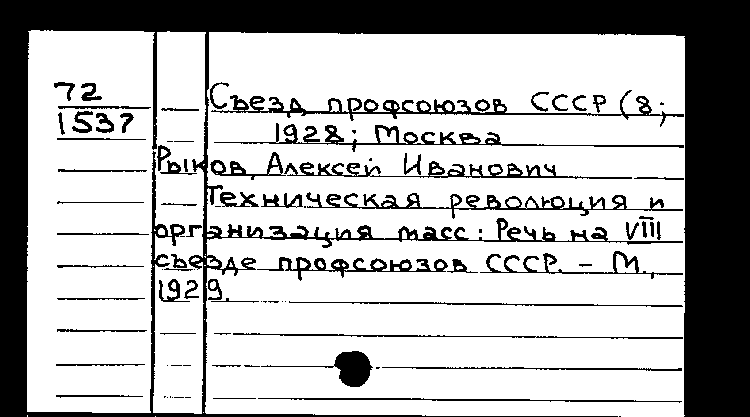 72
1537
Съезд профсоюзов СССР (8;
1928; Москва
Рыков, Алексей Иванович
Техническая революция и
организация масс: Речь на VIII
съезде профсоюзов СССР. - М.,
1929.